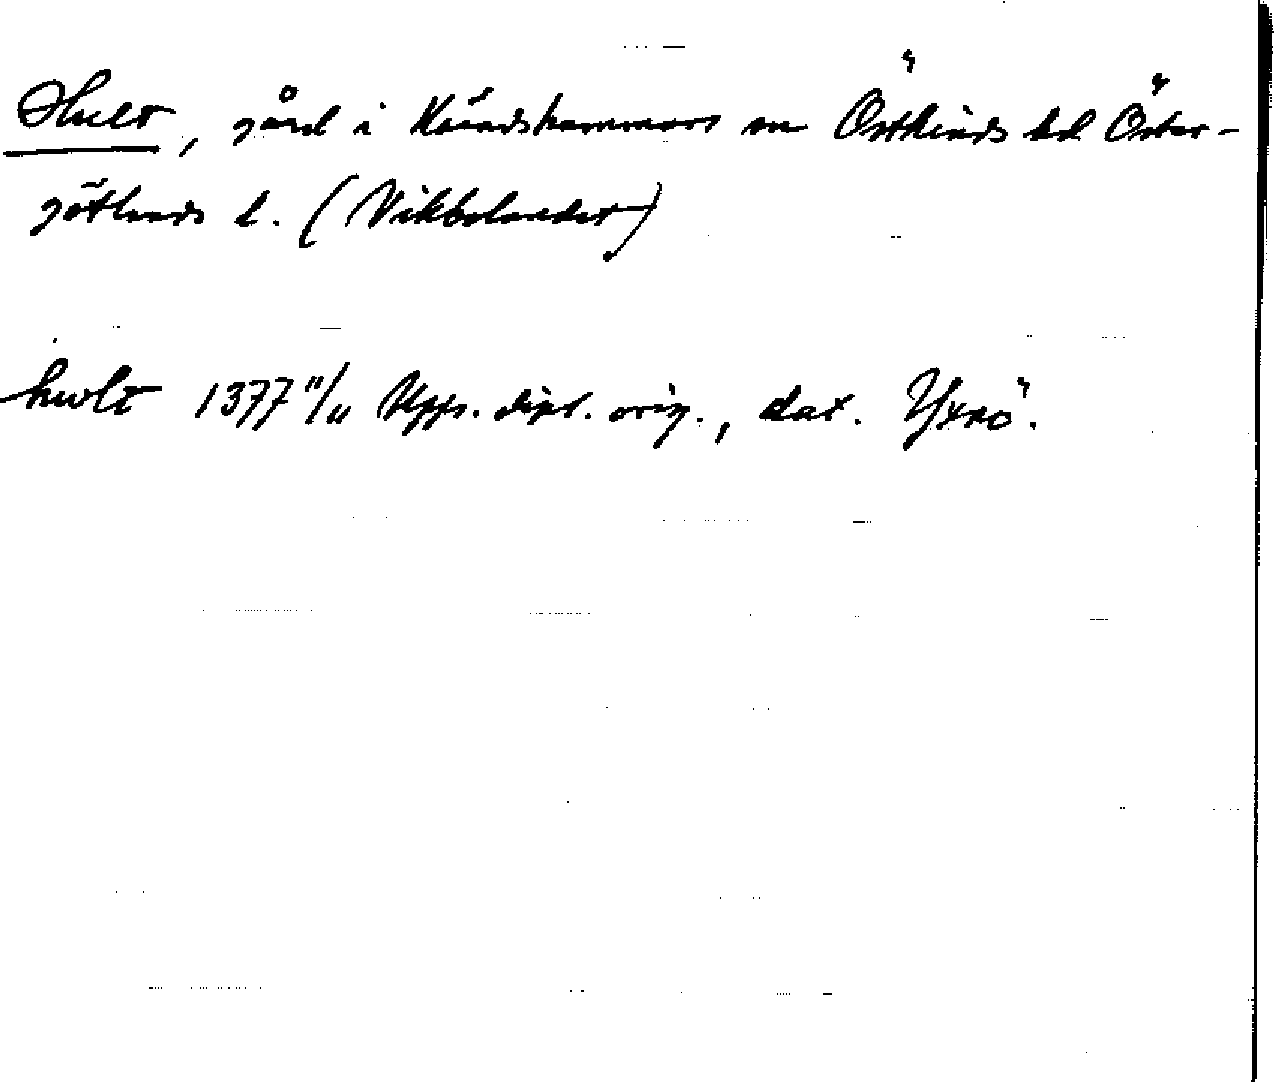 Hult, gård i Rönö... sn Östkinds hd Öster-
götlands l. (Vikbolandet)
hwlt 1377 11/11 Upps. dipl. orig., dat. Yxnö.